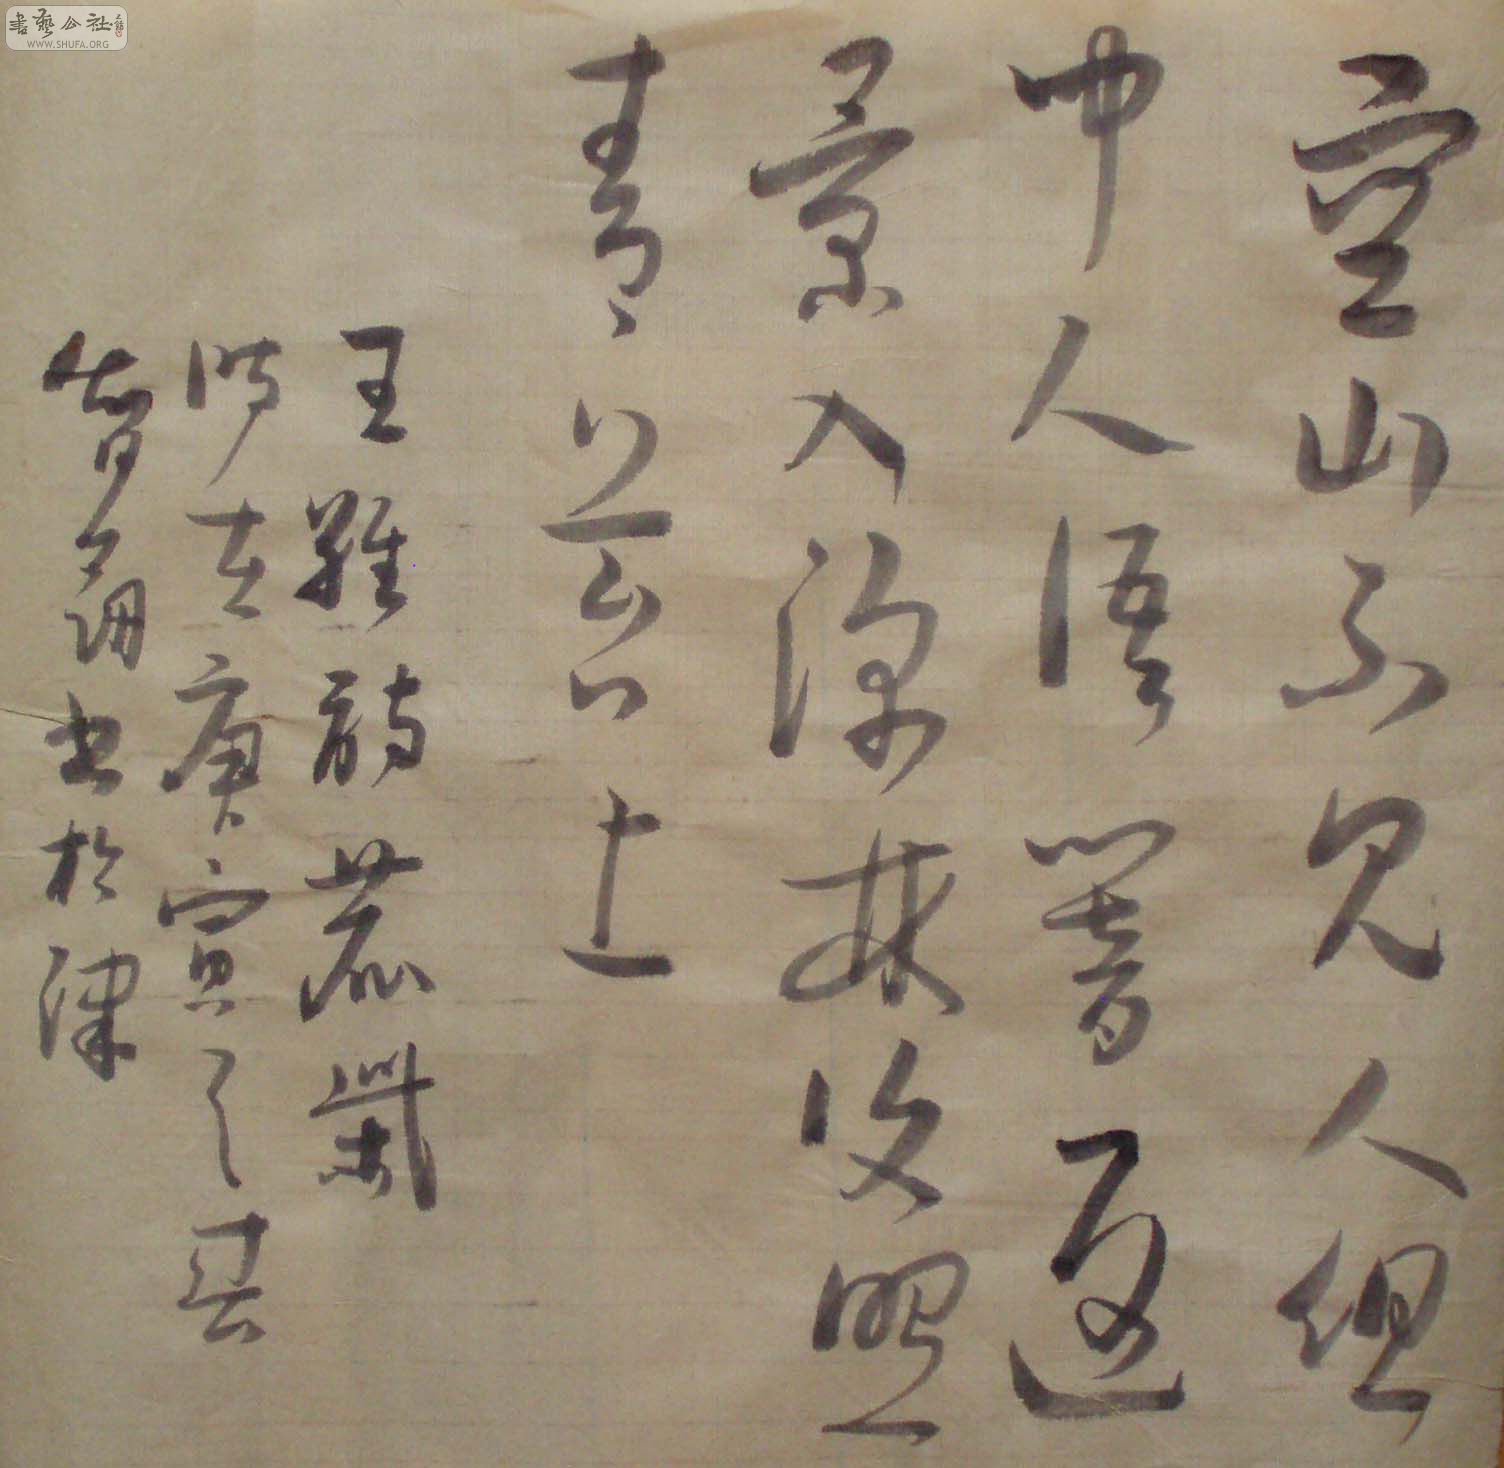 空山不見人但
聞人語響返
景入深林復照
青苔上
王維詩鹿柴
時在庚寅之春
智書於津
書藝公社
WWW.SHUFA.ORG